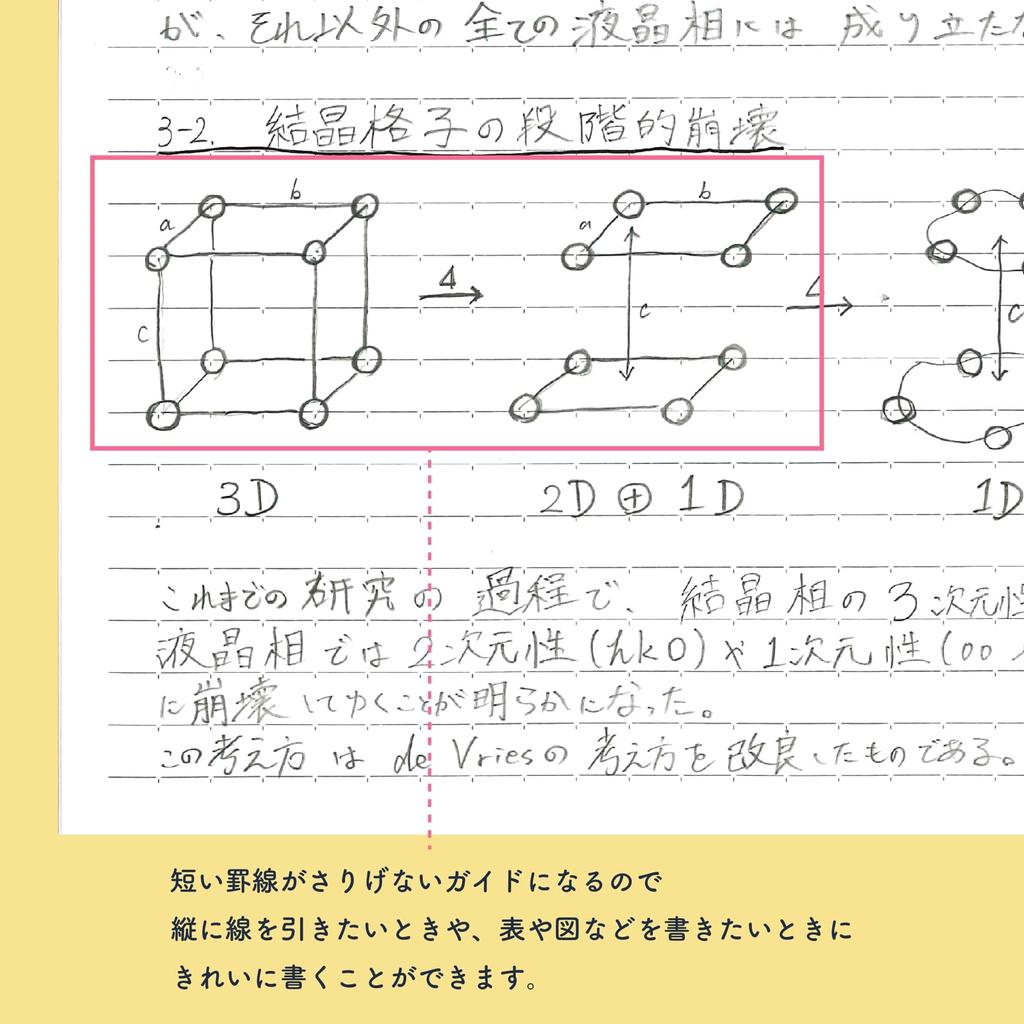 が、それ以外の全ての液晶相には成り立たな
3-2. 結晶格子の段階的崩壊
b
a
c
4
b
a
c
4
c
3D
2D ⊕ 1D
1D
これまでの研究の過程で、結晶相の3次元性
液晶相では2次元性(hk0)や1次元性(00
に崩壊してゆくことが明らかになった。
この考え方は de Vriesの考え方を改良したものである。
短い罫線がさりげないガイドになるので
縦に線を引きたいときや、表や図などを書きたいときに
きれいに書くことができます。